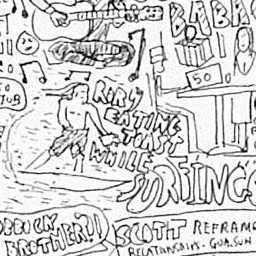 BABA
50
TO
JOB
RORY
EATING
TOAST
WHILE
SURFING
BROTHER?!
SCOTT REFRAME
RELATIONSHIPS - GUA.SUN